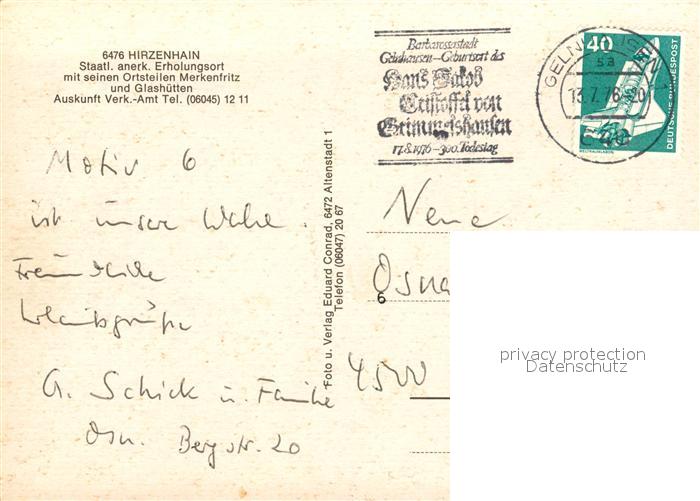 6476 HIRZENHAIN
Staatl. anerk. Erholungsort
mit seinen Ortsteilen Merkenfritz
und Glashütten
Auskunft Verk.-Amt Tel. (06045) 12 11
Motiv 6
ist unsere Wahl.
Freundliche
Urlaubsgrüße
G. Schick u. Familie
Osn. Bergstr. 20
Foto u. Verlag Eduard Conrad, 6472 Altenstadt 1
Telefon (06047) 20 67
Barbarossastadt
Gelnhausen–Geburtsort des
Hans Jakob
Cristoffel von
Grimmelshausen
17.8.1976–300.Todestag
GELNHAUSEN
sa
13.7.76-20
40
DEUTSCHE BUNDESPOST
WELTRAUMLABOR
Neue
Osna
6
4500
privacy protection
Datenschutz